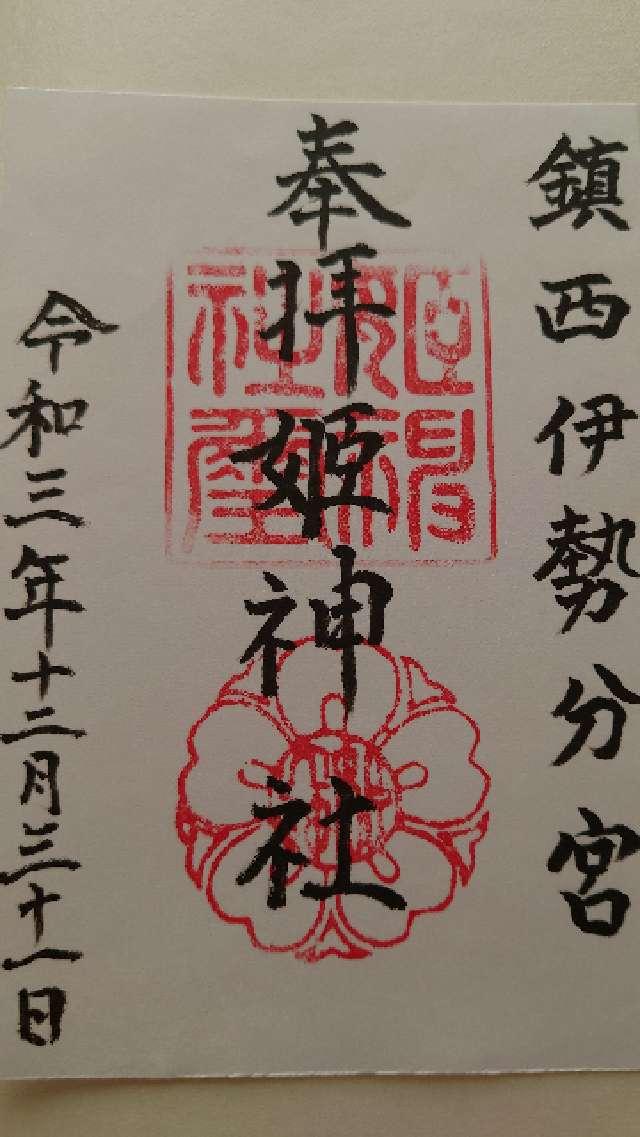 鎮西伊勢分宮
奉拝姫神社
令和三年十二月三十一日